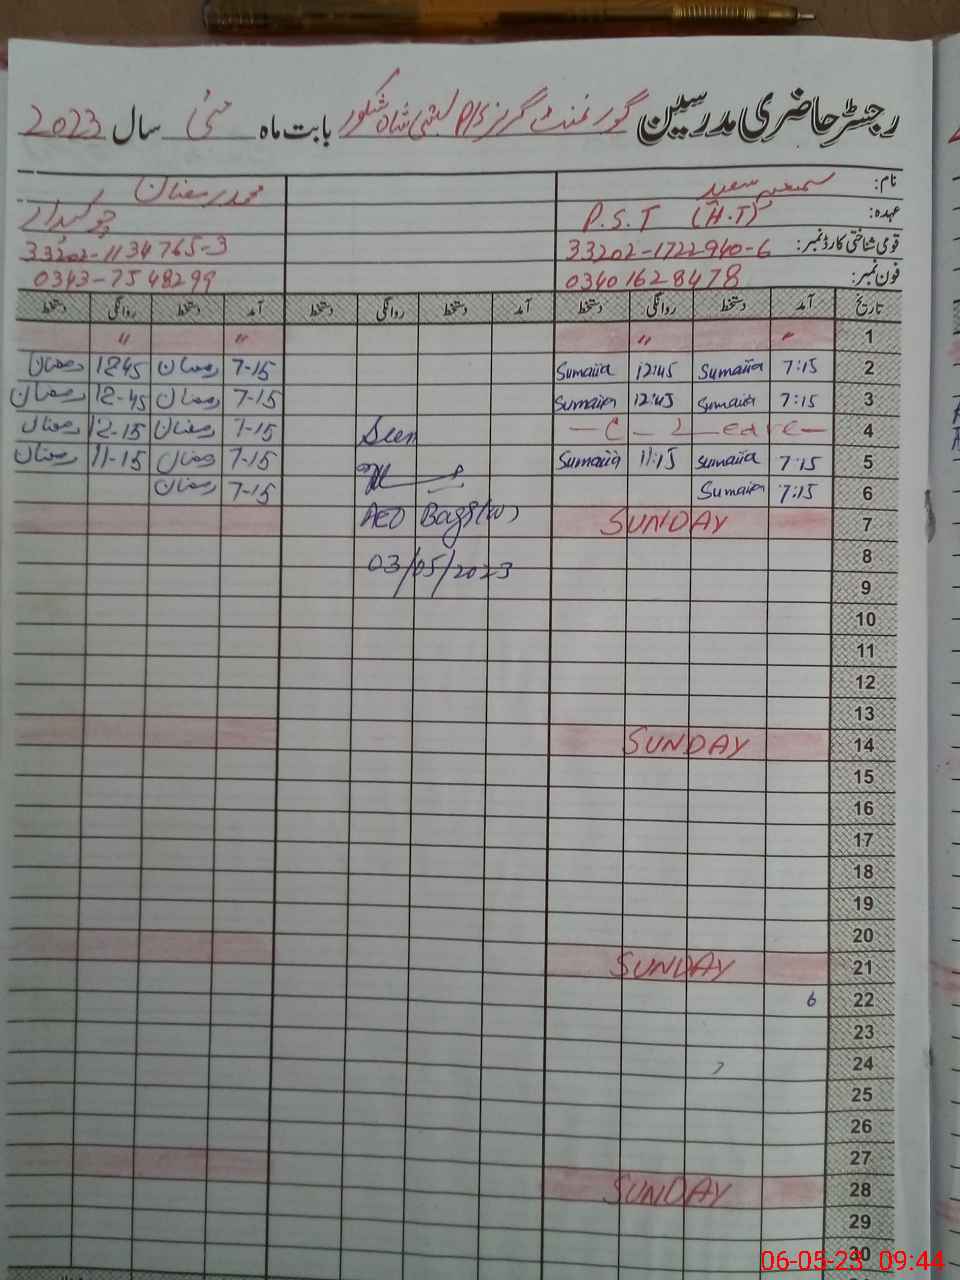 رجسٹر حاضری مدرسین گورنمنٹ گرلز P/S بستی شاہ شکور بابت ماہ مئی سال 2023
نام: سمیعہ سعید محمد رمضان
عہدہ: P.S.T (H.T) چوکیدار
قومی شناختی کارڈ نمبر: 33202-1722940-6 33202-1134765-3
فون نمبر: 03401628478 0343-7548299
تاریخ آمد دستخط روانگی دستخط آمد دستخط روانگی دستخط آمد دستخط روانگی دستخط
1 " " " "
2 7:15 Sumaiia 12:45 Sumaiia 7-15 رمضان 1245 رمضان
3 7:15 Sumaiia 12:45 Sumaiia 7-15 رمضان 12-45 رمضان
4 — C — L — eave — Seen 7-15 رمضان 12-15 رمضان
5 7:15 Sumaiia 11:15 Sumaiia 7-15 رمضان 11-15 رمضان
6 7:15 Sumaiia 7-15 رمضان
7 SUNDAY AEO Bagh (W)
8 03/05/2023
9
10
11
12
13
14 SUNDAY
15
16
17
18
19
20
21 SUNDAY
22 6
23
24
25
26
27
28 SUNDAY
29
30
06-05-23 09:44